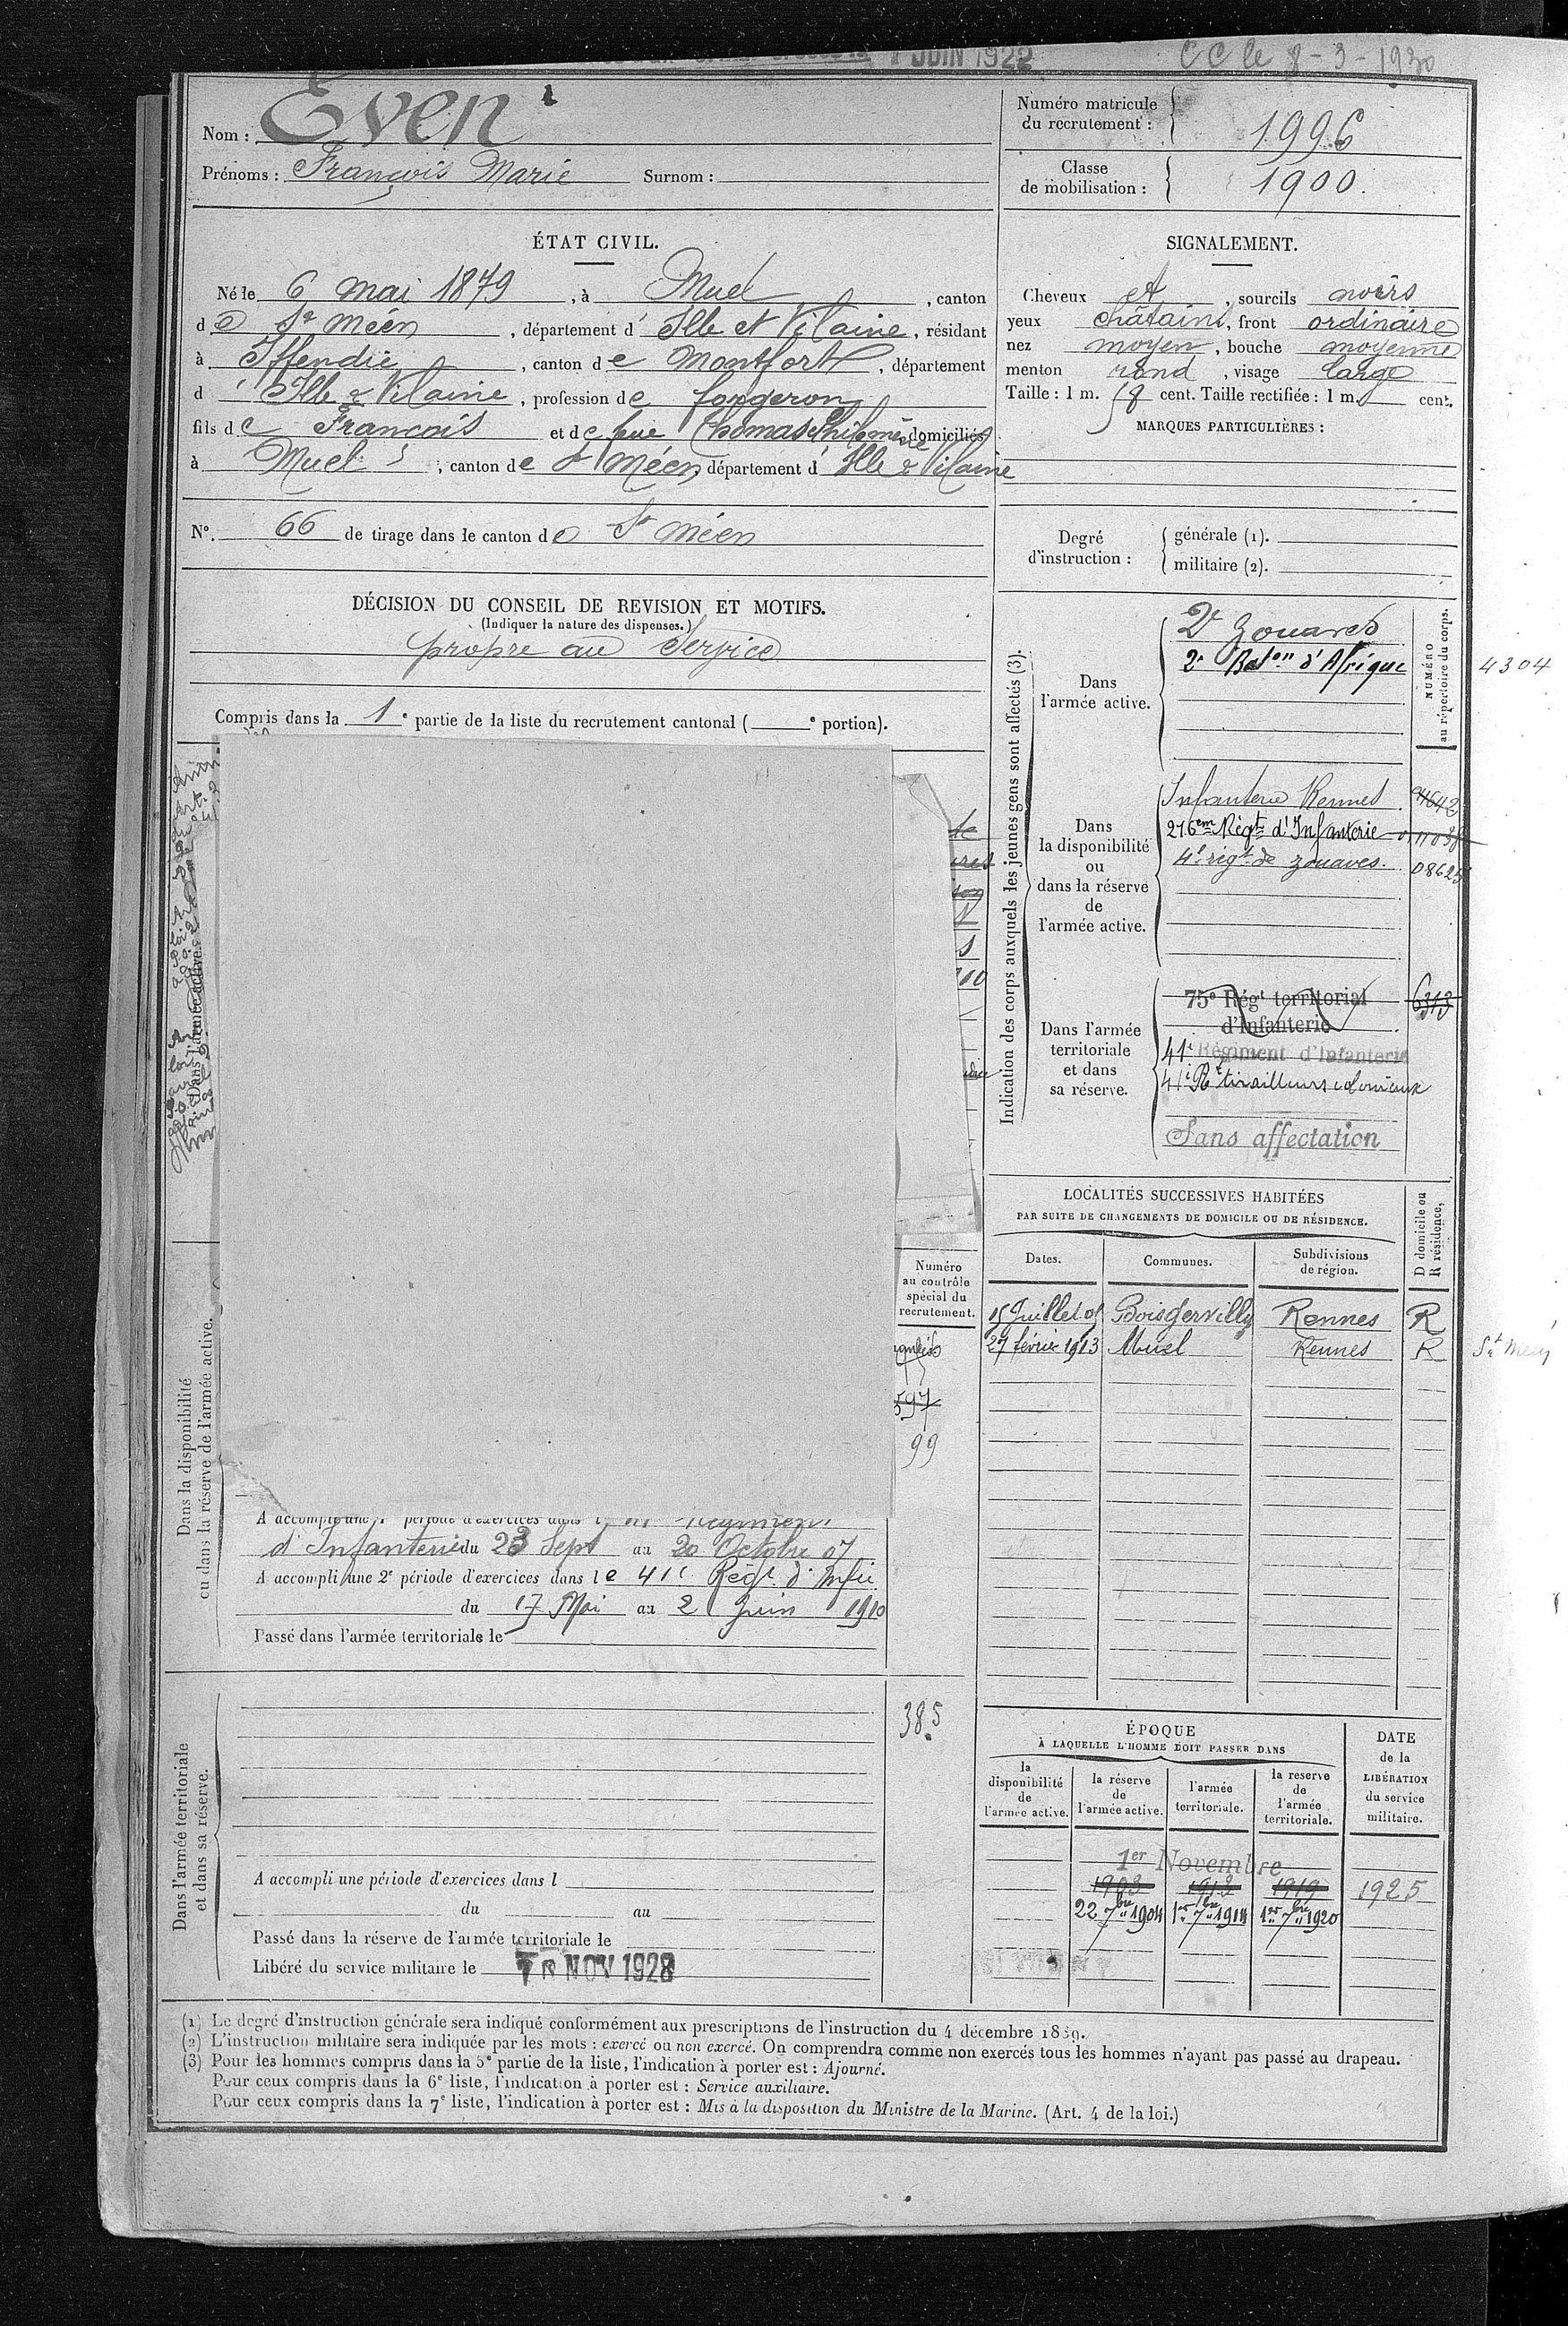 1 JUIN 1922
CC le 8-3-1930
Nom : Even
Prénoms : François Marie Surnom :
Numéro matricule du recrutement : 1996
Classe de mobilisation : 1900.
ÉTAT CIVIL.
Né le 6 mai 1879, à Muel, canton
de St Méen, département d' Ille et Vilaine, résidant
à Iffendic, canton de Montfort, département
d' Ille & Vilaine, profession de forgeron
fils de François et de feue Thomas Philomène domiciliés
à Muel, canton de St Méen, département d' Ille & Vilaine
N°. 66 de tirage dans le canton de St Méen
SIGNALEMENT.
Cheveux et, sourcils noirs
yeux châtains, front ordinaire
nez moyen, bouche moyenne
menton rond, visage large
Taille : 1 m. 58 cent. Taille rectifiée : 1 m. cent.
MARQUES PARTICULIÈRES :
Degré d'instruction : générale (1).
militaire (2).
DÉCISION DU CONSEIL DE REVISION ET MOTIFS.
(Indiquer la nature des dispenses.)
propre au Service
Compris dans la 1e partie de la liste du recrutement cantonal ( e portion).
Indication des corps auxquels les jeunes gens sont affectés (3).
NUMÉRO au répertoire du corps.
Dans l'armée active.
2e Zouaves
2e Baton d'Afrique
4304
Dans la disponibilité ou dans la réserve de l'armée active.
Infanterie Rennes
216em Régt d'Infanterie
4e régt de zouaves.
Dans l'armée territoriale et dans sa réserve.
75e Régt territorial d'Infanterie
6313
41e Régiment d'Infanterie
Rt tirailleurs coloniaux
Sans affectation
LOCALITÉS SUCCESSIVES HABITÉES
PAR SUITE DE CHANGEMENTS DE DOMICILE OU DE RÉSIDENCE.
D domicile ou R résidence.
Dates. Communes. Subdivisions de région.
15 Juillet Boisgervilly Rennes R
27 février 1913 Muel Rennes R
St Méen
Dans l'armée active.
Dans la disponibilité ou dans la réserve de l'armée active.
Numéro au contrôle spécial du recrutement.
597
99
A accompli une 1e période d'exercices dans l Régiment
d'Infanterie du 23 Sept au 20 Octobre 07
A accompli une 2e période d'exercices dans le 41e Régt d'Infie
du 17 Mai au 2 Juin 1910
Passé dans l'armée territoriale le
Dans l'armée territoriale et dans sa réserve.
385
A accompli une période d'exercices dans l
du au
Passé dans la réserve de l'armée territoriale le
Libéré du service militaire le NOV 1928
ÉPOQUE
À LAQUELLE L'HOMME DOIT PASSER DANS
DATE de la LIBÉRATION du service militaire.
la disponibilité de l'armée active. la réserve de l'armée active. l'armée territoriale. la reserve de l'armée territoriale.
1er Novembre
1903 1913 1919 1925
22 7bre 1904 1er 7bre 1914 1er 7bre 1920
(1) Le degré d'instruction générale sera indiqué conformément aux prescriptions de l'instruction du 4 décembre 1889.
(2) L'instruction militaire sera indiquée par les mots : exercé ou non exercé. On comprendra comme non exercés tous les hommes n'ayant pas passé au drapeau.
(3) Pour les hommes compris dans la 5e partie de la liste, l'indication à porter est : Ajourné.
Pour ceux compris dans la 6e liste, l'indication à porter est : Service auxiliaire.
Pour ceux compris dans la 7e liste, l'indication à porter est : Mis à la disposition du Ministre de la Marine. (Art. 4 de la loi.)